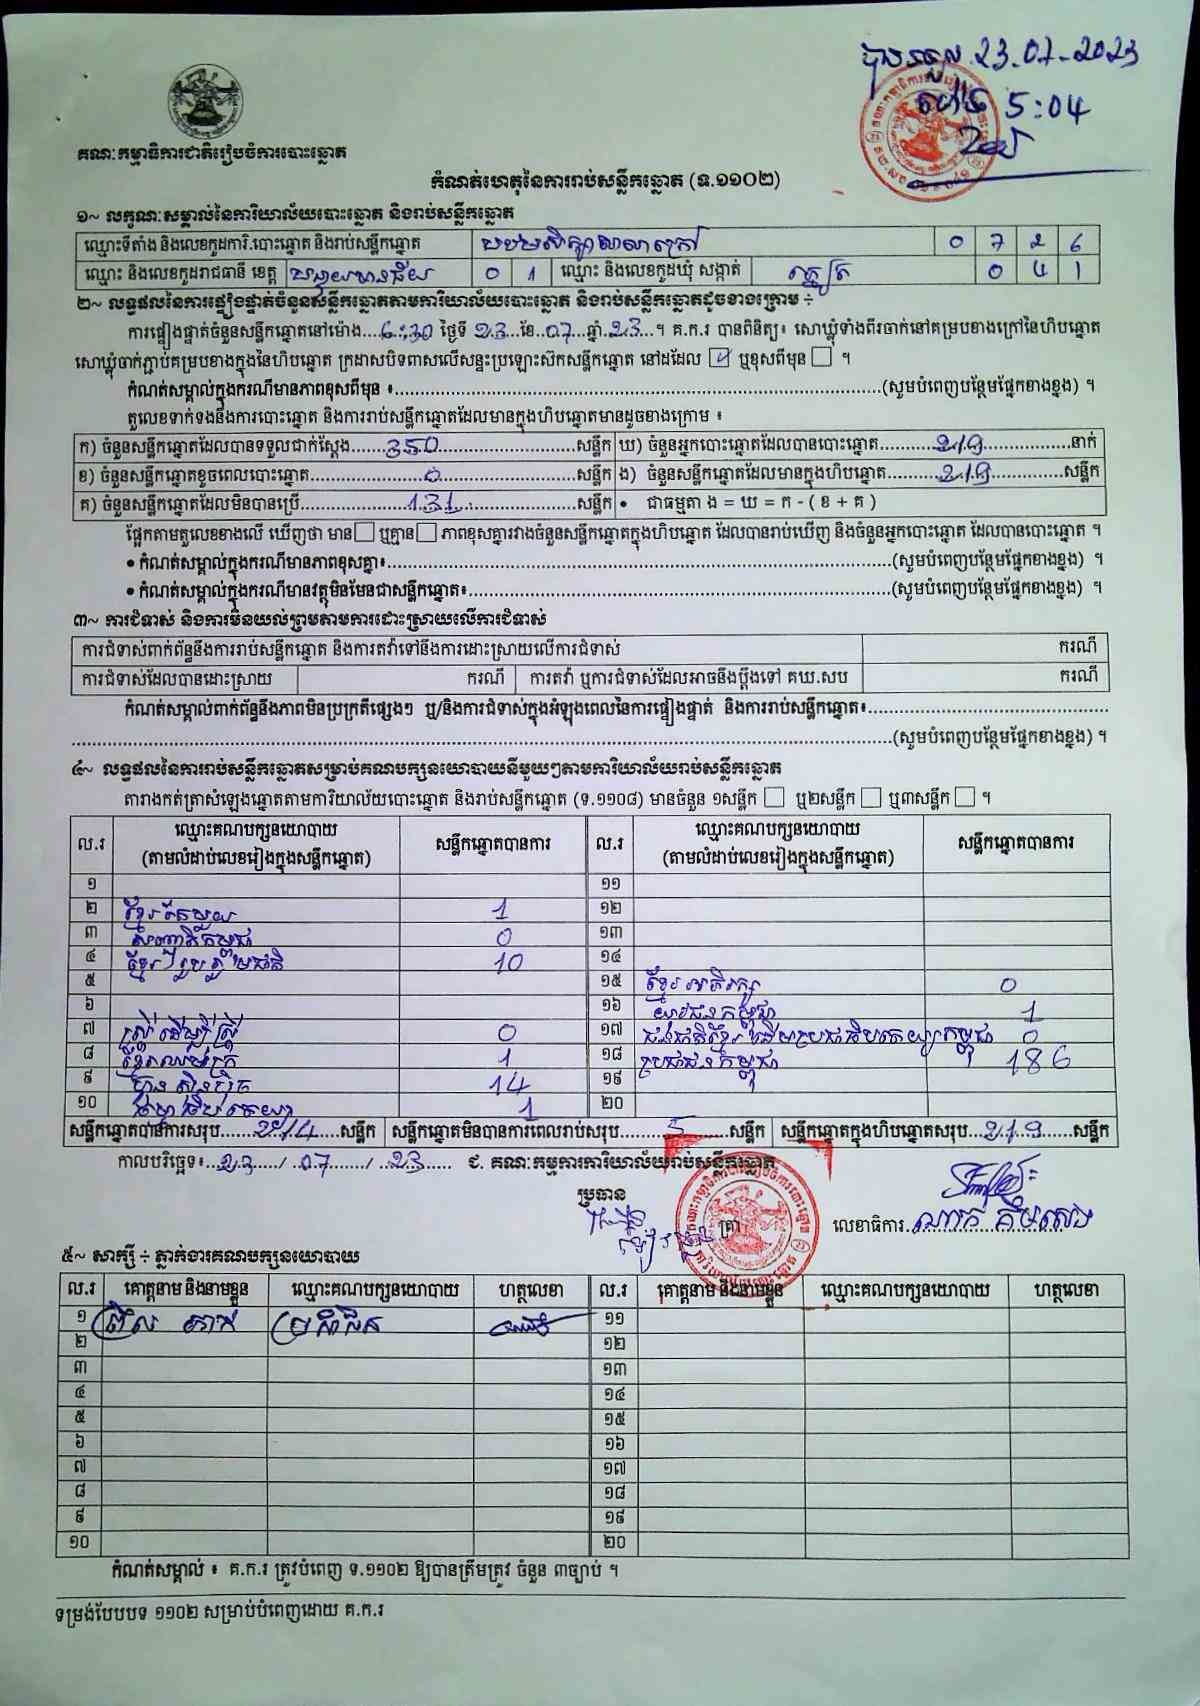 23-07-2023
ម៉ោង 5:04
គណៈកម្មាធិការជាតិរៀបចំការបោះឆ្នោត
កំណត់ហេតុនៃការរាប់សន្លឹកឆ្នោត (ទ.១១០២)
១~ លក្ខណៈសម្គាល់នៃការិយាល័យបោះឆ្នោត និងរាប់សន្លឹកឆ្នោត
ឈ្មោះទីតាំង និងលេខកូដការិ.បោះឆ្នោត និងរាប់សន្លឹកឆ្នោត 0 7 2 6
ឈ្មោះ និងលេខកូដរាជធានី ខេត្ត បន្ទាយមានជ័យ 0 1 ឈ្មោះ និងលេខកូដឃុំ សង្កាត់ 0 4 1
២~ លទ្ធផលនៃការផ្ទៀងផ្ទាត់ចំនួនសន្លឹកឆ្នោតតាមការិយាល័យបោះឆ្នោត និងរាប់សន្លឹកឆ្នោតដូចខាងក្រោម ÷
ការផ្ទៀងផ្ទាត់ចំនួនសន្លឹកឆ្នោតនៅម៉ោង...6:30 ថ្ងៃទី 23 ខែ..07..ឆ្នាំ.23..។ គ.ក.រ បានពិនិត្យ៖ សោឃ្លុំទាំងពីរចាក់នៅគម្របខាងក្រៅនៃហិបឆ្នោត
សោឃ្លុំចាក់ភ្ជាប់គម្របខាងក្នុងនៃហិបឆ្នោត ក្រដាសបិទពាសលើសន្ទះប្រឡោះស៊កសន្លឹកឆ្នោត នៅដដែល ☑ ឬខុសពីមុន ☐ ។
កំណត់សម្គាល់ក្នុងករណីមានភាពខុសពីមុន ៖...(សូមបំពេញបន្ថែមផ្នែកខាងខ្នង) ។
តួលេខទាក់ទងនឹងការបោះឆ្នោត និងការរាប់សន្លឹកឆ្នោតដែលមានក្នុងហិបឆ្នោតមានដូចខាងក្រោម ៖
ក) ចំនួនសន្លឹកឆ្នោតដែលបានទទួលជាក់ស្តែង...350...សន្លឹក ឃ) ចំនួនអ្នកបោះឆ្នោតដែលបានបោះឆ្នោត...219...នាក់
ខ) ចំនួនសន្លឹកឆ្នោតខូចពេលបោះឆ្នោត...0...សន្លឹក ង) ចំនួនសន្លឹកឆ្នោតដែលមានក្នុងហិបឆ្នោត...219...សន្លឹក
គ) ចំនួនសន្លឹកឆ្នោតដែលមិនបានប្រើ...131...សន្លឹក • ជាធម្មតា ង = ឃ = ក - ( ខ + គ )
ផ្អែកតាមតួលេខខាងលើ ឃើញថា មាន ☐ ឬគ្មាន ☐ ភាពខុសគ្នារវាងចំនួនសន្លឹកឆ្នោតក្នុងហិបឆ្នោត ដែលបានរាប់ឃើញ និងចំនួនអ្នកបោះឆ្នោត ដែលបានបោះឆ្នោត ។
• កំណត់សម្គាល់ក្នុងករណីមានភាពខុសគ្នា៖...(សូមបំពេញបន្ថែមផ្នែកខាងខ្នង) ។
• កំណត់សម្គាល់ក្នុងករណីមានវត្ថុមិនមែនជាសន្លឹកឆ្នោត៖...(សូមបំពេញបន្ថែមផ្នែកខាងខ្នង) ។
៣~ ការជំទាស់ និងការមិនយល់ព្រមតាមការដោះស្រាយលើការជំទាស់
ការជំទាស់ពាក់ព័ន្ធនឹងការរាប់សន្លឹកឆ្នោត និងការតវ៉ាទៅនឹងការដោះស្រាយលើការជំទាស់ ករណី
ការជំទាស់ដែលបានដោះស្រាយ ករណី ការតវ៉ា ឬការជំទាស់ដែលអាចនឹងប្តឹងទៅ គឃ.សប ករណី
កំណត់សម្គាល់ពាក់ព័ន្ធនឹងភាពមិនប្រក្រតីផ្សេងៗ ឬ/និងការជំទាស់ក្នុងអំឡុងពេលនៃការផ្ទៀងផ្ទាត់ និងការរាប់សន្លឹកឆ្នោត៖...
...(សូមបំពេញបន្ថែមផ្នែកខាងខ្នង) ។
៤~ លទ្ធផលនៃការរាប់សន្លឹកឆ្នោតសម្រាប់គណបក្សនយោបាយនីមួយៗតាមការិយាល័យរាប់សន្លឹកឆ្នោត
តារាងកត់ត្រាសំឡេងឆ្នោតតាមការិយាល័យបោះឆ្នោត និងរាប់សន្លឹកឆ្នោត (ទ.១១០៨) មានចំនួន ១សន្លឹក ☐ ឬ២សន្លឹក ☐ ឬ៣សន្លឹក ☐ ។
ល.រ ឈ្មោះគណបក្សនយោបាយ (តាមលំដាប់លេខរៀងក្នុងសន្លឹកឆ្នោត) សន្លឹកឆ្នោតបានការ ល.រ ឈ្មោះគណបក្សនយោបាយ (តាមលំដាប់លេខរៀងក្នុងសន្លឹកឆ្នោត) សន្លឹកឆ្នោតបានការ
១ ១១
២ ខ្មែរតែមួយ 1 ១២
៣ 0 ១៣
៤ ខ្មែររួបរួមជាតិ 10 ១៤
៥ ១៥ ខ្មែរអភិរក្ស 0
៦ ១៦ យុវជនកម្ពុជា 1
៧ ស្ត្រីដើម្បីស្ត្រី 0 ១៧ ជនជាតិខ្មែរដើមប្រជាធិបតេយ្យកម្ពុជា 0
៨ 1 ១៨ ប្រជាជនកម្ពុជា 186
៩ ហ៊្វុនស៊ិនប៉ិច 14 ១៩
១០ 1 ២០
សន្លឹកឆ្នោតបានការសរុប...214...សន្លឹក សន្លឹកឆ្នោតមិនបានការពេលរាប់សរុប...5...សន្លឹក សន្លឹកឆ្នោតក្នុងហិបឆ្នោតសរុប...219...សន្លឹក
កាលបរិច្ឆេទ៖..23../..07../..23.. ជ. គណៈកម្មការការិយាល័យរាប់សន្លឹកឆ្នោត
ប្រធាន
ត្រា លេខាធិការ
៥~ សាក្សី ÷ ភ្នាក់ងារគណបក្សនយោបាយ
ល.រ គោត្តនាម និងនាមខ្លួន ឈ្មោះគណបក្សនយោបាយ ហត្ថលេខា ល.រ គោត្តនាម និងនាមខ្លួន ឈ្មោះគណបក្សនយោបាយ ហត្ថលេខា
១ ១១
២ ១២
៣ ១៣
៤ ១៤
៥ ១៥
៦ ១៦
៧ ១៧
៨ ១៨
៩ ១៩
១០ ២០
កំណត់សម្គាល់ ៖ គ.ក.រ ត្រូវបំពេញ ទ.១១០២ ឱ្យបានត្រឹមត្រូវ ចំនួន ៣ច្បាប់ ។
ទម្រង់បែបបទ ១១០២ សម្រាប់បំពេញដោយ គ.ក.រ